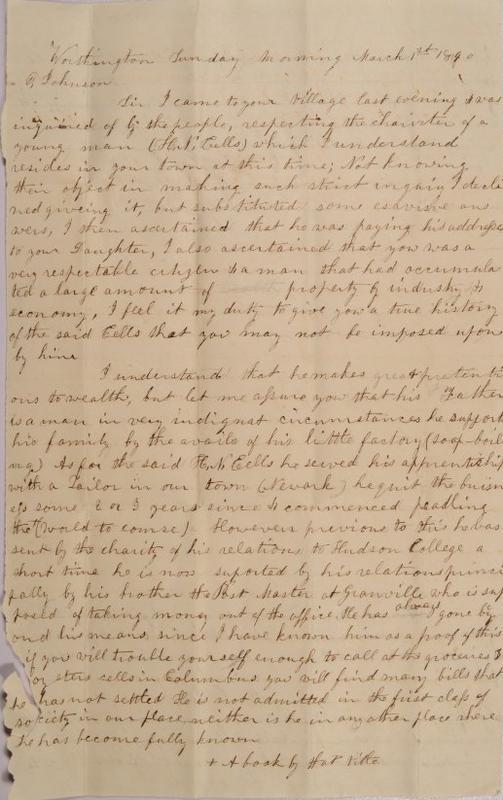 Worthington Sunday Morning March 1st 1840
Johnson
Sir I came to your Village last evening & was
inquired of by the people, respecting the charicter of a
young man (H. N. Eells) which I understand
resides in your town at this time; Not knowing
their object in making such strict inquiry I decli
ned giveing it, but substituted some esavisive ans
wers, I then ascertained that he was paying his addresses
to your Daughter, I also ascertained that you was a
very respectable citizen & a man that had accumula
ted a large amount of property by industry &
economy, I feel it my duty to give you a true history
of the said Eells that you may not be imposed upon
by him
I understand that he makes great pretenti
ons to wealth, but let me assure you that his Father
is a man in very indignat circumstances he support
his family by the avails of his little factory (soap-boil
ing) As for the said H. N. Eells he served his apprentiship
with a Tailor in our town (Newark) he quit the buisn
ess some 2 or 3 years since & commenced peadling
the (world to come). However previous to this he was
sent by the charity of his relations to Hudson College a
short time he is now suported by his relations princi
pally by his brother the Post Master at Granville who is sup
posed of taking money out of the office. He has always gone bey
ond his means, since I have known him as a proof of this
if you will trouble yourself enough to call at the groceries &
oysters cells in Columbus you will find many bills that
he has not settled He is not admitted in the first class of
society in our place neither is he in any other place where
he has become fully known
+ A book by